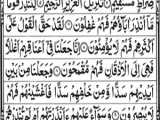 صِرَاطٍ مُّسْتَقِيْمٍ ۝ تَنْزِيْلَ الْعَزِيْزِ الرَّحِيْمِ ۝ لِتُنْذِرَ قَوْمًا
مَّآ اُنْذِرَ اٰبَآؤُهُمْ فَهُمْ غٰفِلُوْنَ ۝ لَقَدْ حَقَّ الْقَوْلُ عَلٰٓى
اَكْثَرِهِمْ فَهُمْ لَا يُؤْمِنُوْنَ ۝ اِنَّا جَعَلْنَا فِيْٓ اَعْنَاقِهِمْ اَغْلٰلًا
فَهِيَ اِلَى الْاَذْقَانِ فَهُمْ مُّقْمَحُوْنَ ۝ وَجَعَلْنَا مِنْۢ بَيْنِ
اَيْدِيْهِمْ سَدًّا وَّمِنْ خَلْفِهِمْ سَدًّا فَاَغْشَيْنٰهُمْ فَهُمْ
لَا يُبْصِرُوْنَ ۝ وَسَوَآءٌ عَلَيْهِمْ